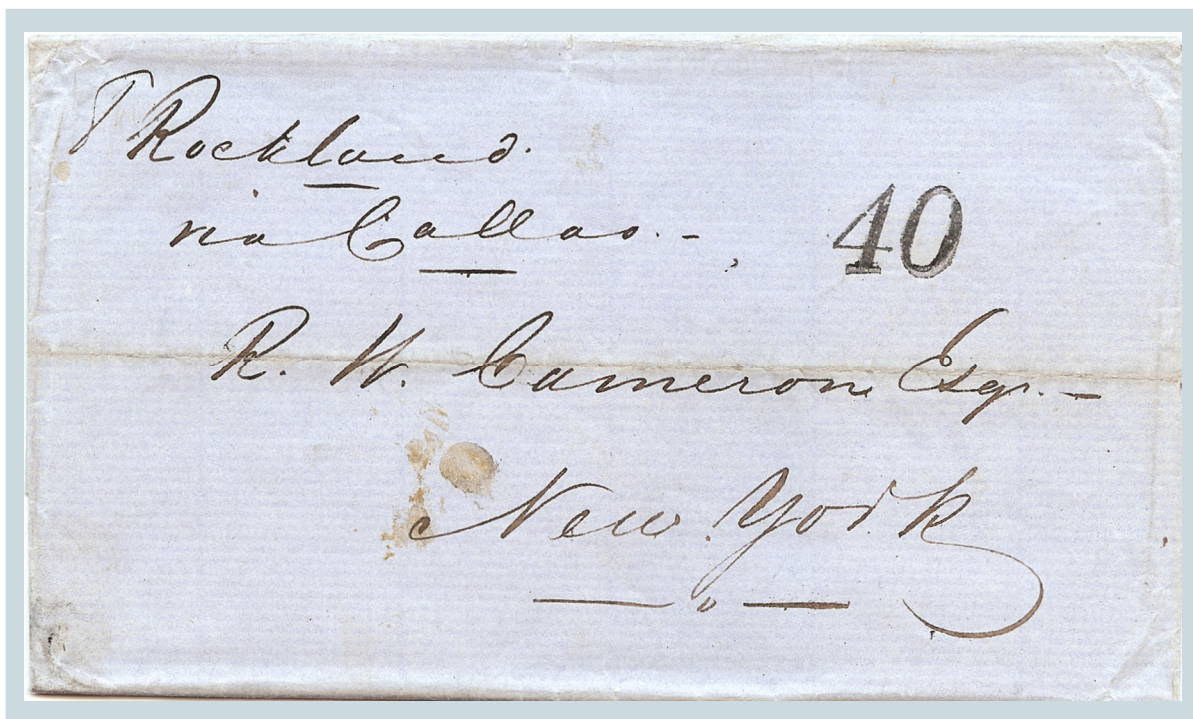 ⅌ Rockland.
via Callao. -
40
R. W. Cameron Esqr. -
New York